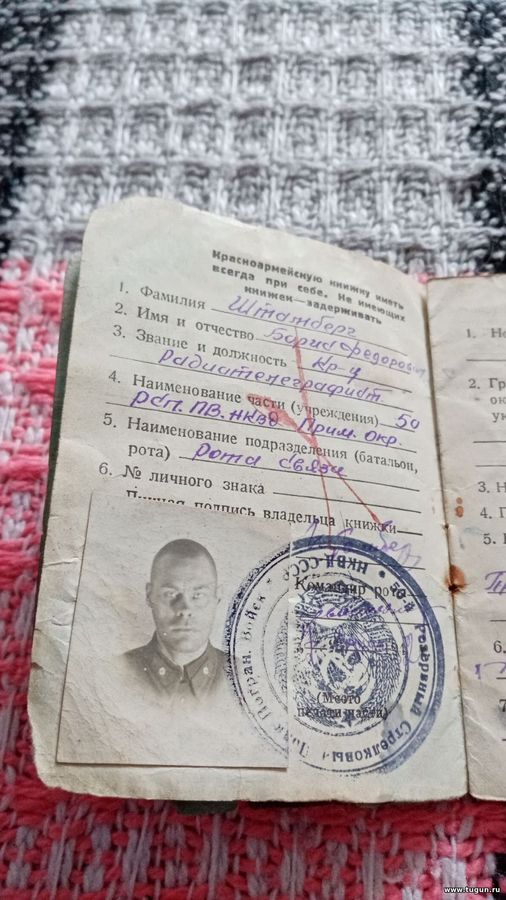 Красноармейскую книжку иметь
всегда при себе. Не имеющих
книжек—задерживать
1. Фамилия Штамберг
2. Имя и отчество Борис Федорович
3. Звание и должность Кр-ц
радиотелеграфист
4. Наименование части (учреждения) 50
рсп. ПВ. НКВД Прим. окр.
5. Наименование подразделения (батальон,
рота) Рота связи
6. № личного знака
Личная подпись владельца книжки
Командир роты
(Место
печати части)
НКВД-СССР • 50й Резервный Стрелковый Полк Погран. Войск
1. Не
2. Гр
ок
ук
3. Н
4. Г
5.
6.
7
www.tugun.ru